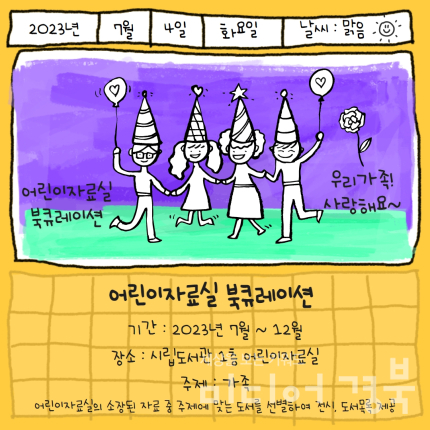 2023년 7월 4일 화요일 날씨 : 맑음
어린이자료실
북큐레이션
우리가족!
사랑해요~
어린이자료실 북큐레이션
기간 : 2023년 7월 ~ 12월
장소 : 시립도서관 1층 어린이자료실
주제 : 가족
어린이자료실의 소장된 자료 중 주제에 맞는 도서를 선별하여 전시, 도서목록 제공
미디어 경북